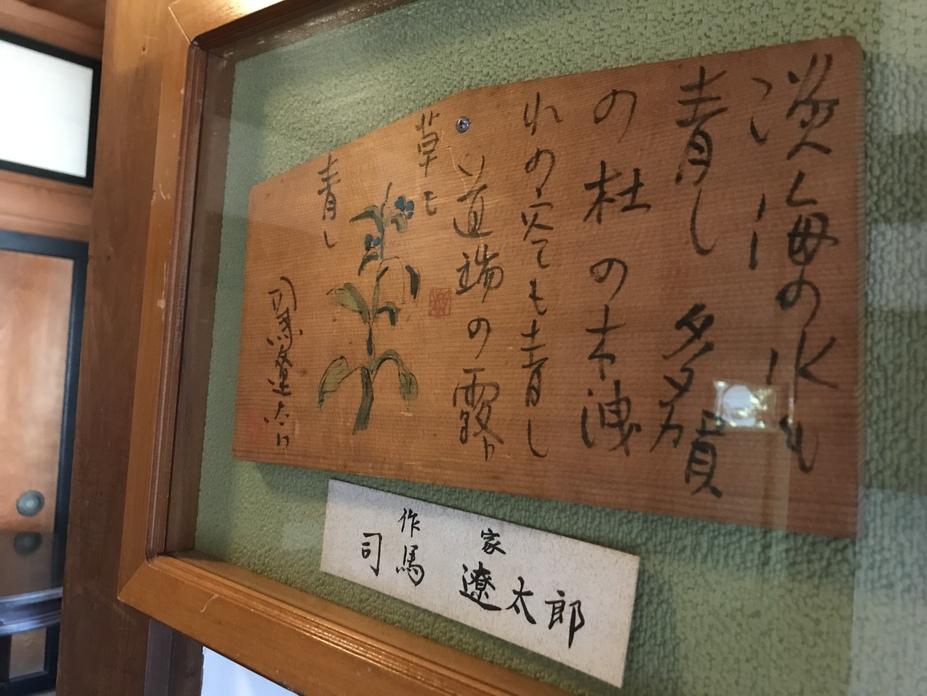 淡海の水も
青し 多賀
の杜の木洩
れの ても青し
道端の露
草モ
青し
司馬遼太郎
作家
司馬遼太郎